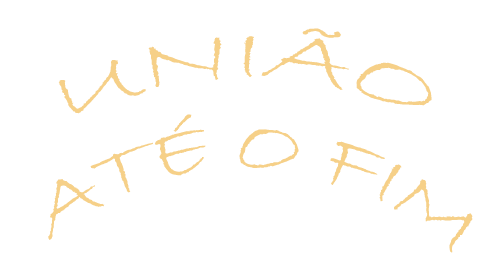 UNIÃO
ATÉ O FIM